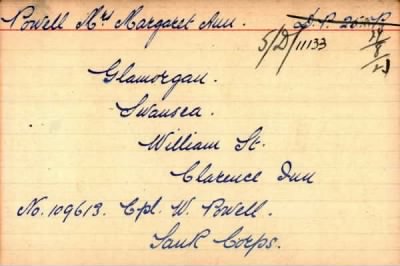 Powell Mrs Margaret Ann. D.P. 
5/D/11133
Glamorgan.
Swansea.
William St.
Clarence Inn
No. 109613. Cpl. W. Powell.
Tank Corps.